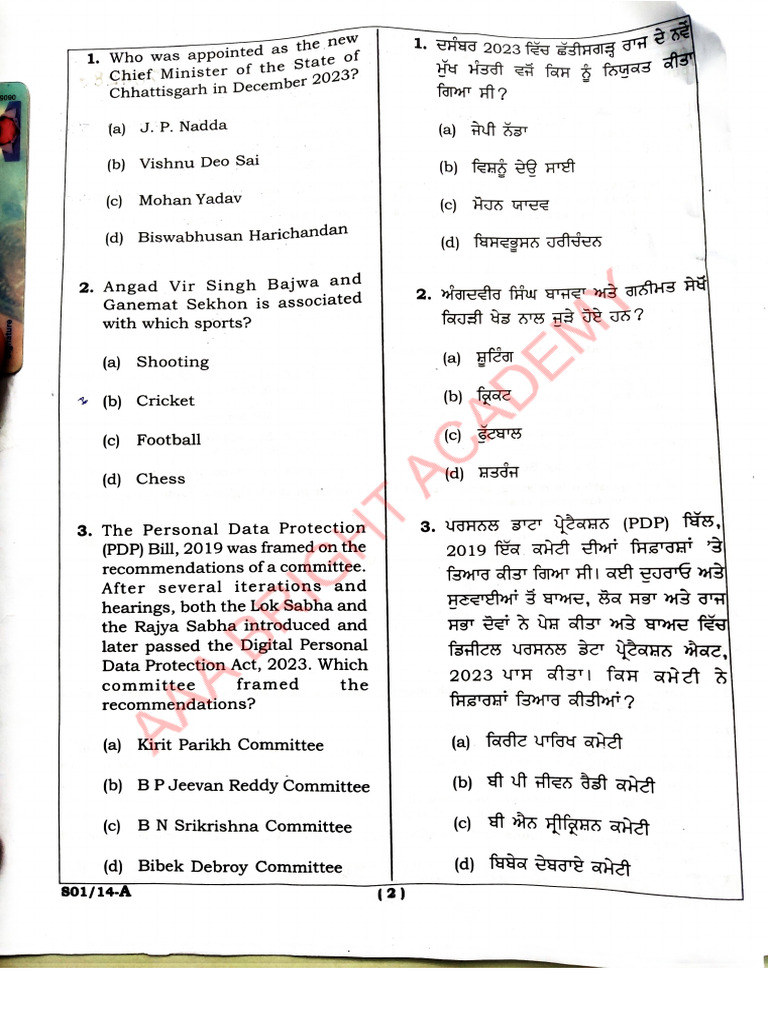 1. Who was appointed as the new
Chief Minister of the State of
Chhattisgarh in December 2023?
(a) J. P. Nadda
(b) Vishnu Deo Sai
(c) Mohan Yadav
(d) Biswabhusan Harichandan
2. Angad Vir Singh Bajwa and
Ganemat Sekhon is associated
with which sports?
(a) Shooting
(b) Cricket
(c) Football
(d) Chess
3. The Personal Data Protection
(PDP) Bill, 2019 was framed on the
recommendations of a committee.
After several iterations and
hearings, both the Lok Sabha and
the Rajya Sabha introduced and
later passed the Digital Personal
Data Protection Act, 2023. Which
committee framed the
recommendations?
(a) Kirit Parikh Committee
(b) B P Jeevan Reddy Committee
(c) B N Srikrishna Committee
(d) Bibek Debroy Committee
1. ਦਸੰਬਰ 2023 ਵਿੱਚ ਛੱਤੀਸਗੜ੍ਹ ਰਾਜ ਦੇ ਨਵੇਂ
ਮੁੱਖ ਮੰਤਰੀ ਵਜੋਂ ਕਿਸ ਨੂੰ ਨਿਯੁਕਤ ਕੀਤਾ
ਗਿਆ ਸੀ?
(a) ਜੇਪੀ ਨੱਡਾ
(b) ਵਿਸ਼ਨੂੰ ਦੇਉ ਸਾਈ
(c) ਮੋਹਨ ਯਾਦਵ
(d) ਬਿਸਵਭੂਸਨ ਹਰੀਚੰਦਨ
2. ਅੰਗਦਵੀਰ ਸਿੰਘ ਬਾਜਵਾ ਅਤੇ ਗਨੀਮਤ ਸੇਖੋਂ
ਕਿਹੜੀ ਖੇਡ ਨਾਲ ਜੁੜੇ ਹੋਏ ਹਨ?
(a) ਸ਼ੂਟਿੰਗ
(b) ਕ੍ਰਿਕਟ
(c) ਫੁੱਟਬਾਲ
(d) ਸ਼ਤਰੰਜ
3. ਪਰਸਨਲ ਡਾਟਾ ਪ੍ਰੋਟੈਕਸ਼ਨ (PDP) ਬਿੱਲ,
2019 ਇੱਕ ਕਮੇਟੀ ਦੀਆਂ ਸਿਫ਼ਾਰਸ਼ਾਂ 'ਤੇ
ਤਿਆਰ ਕੀਤਾ ਗਿਆ ਸੀ। ਕਈ ਦੁਹਰਾਓ ਅਤੇ
ਸੁਣਵਾਈਆਂ ਤੋਂ ਬਾਅਦ, ਲੋਕ ਸਭਾ ਅਤੇ ਰਾਜ
ਸਭਾ ਦੋਵਾਂ ਨੇ ਪੇਸ਼ ਕੀਤਾ ਅਤੇ ਬਾਅਦ ਵਿੱਚ
ਡਿਜੀਟਲ ਪਰਸਨਲ ਡੇਟਾ ਪ੍ਰੋਟੈਕਸ਼ਨ ਐਕਟ,
2023 ਪਾਸ ਕੀਤਾ। ਕਿਸ ਕਮੇਟੀ ਨੇ
ਸਿਫ਼ਾਰਸ਼ਾਂ ਤਿਆਰ ਕੀਤੀਆਂ?
(a) ਕਿਰੀਟ ਪਾਰਿਖ ਕਮੇਟੀ
(b) ਬੀ ਪੀ ਜੀਵਨ ਰੈਡੀ ਕਮੇਟੀ
(c) ਬੀ ਐਨ ਸ੍ਰੀਕ੍ਰਿਸ਼ਨ ਕਮੇਟੀ
(d) ਬਿਬੇਕ ਦੇਬਰਾਏ ਕਮੇਟੀ
S01/14-A
( 2 )
AAA BRIGHT ACADEMY